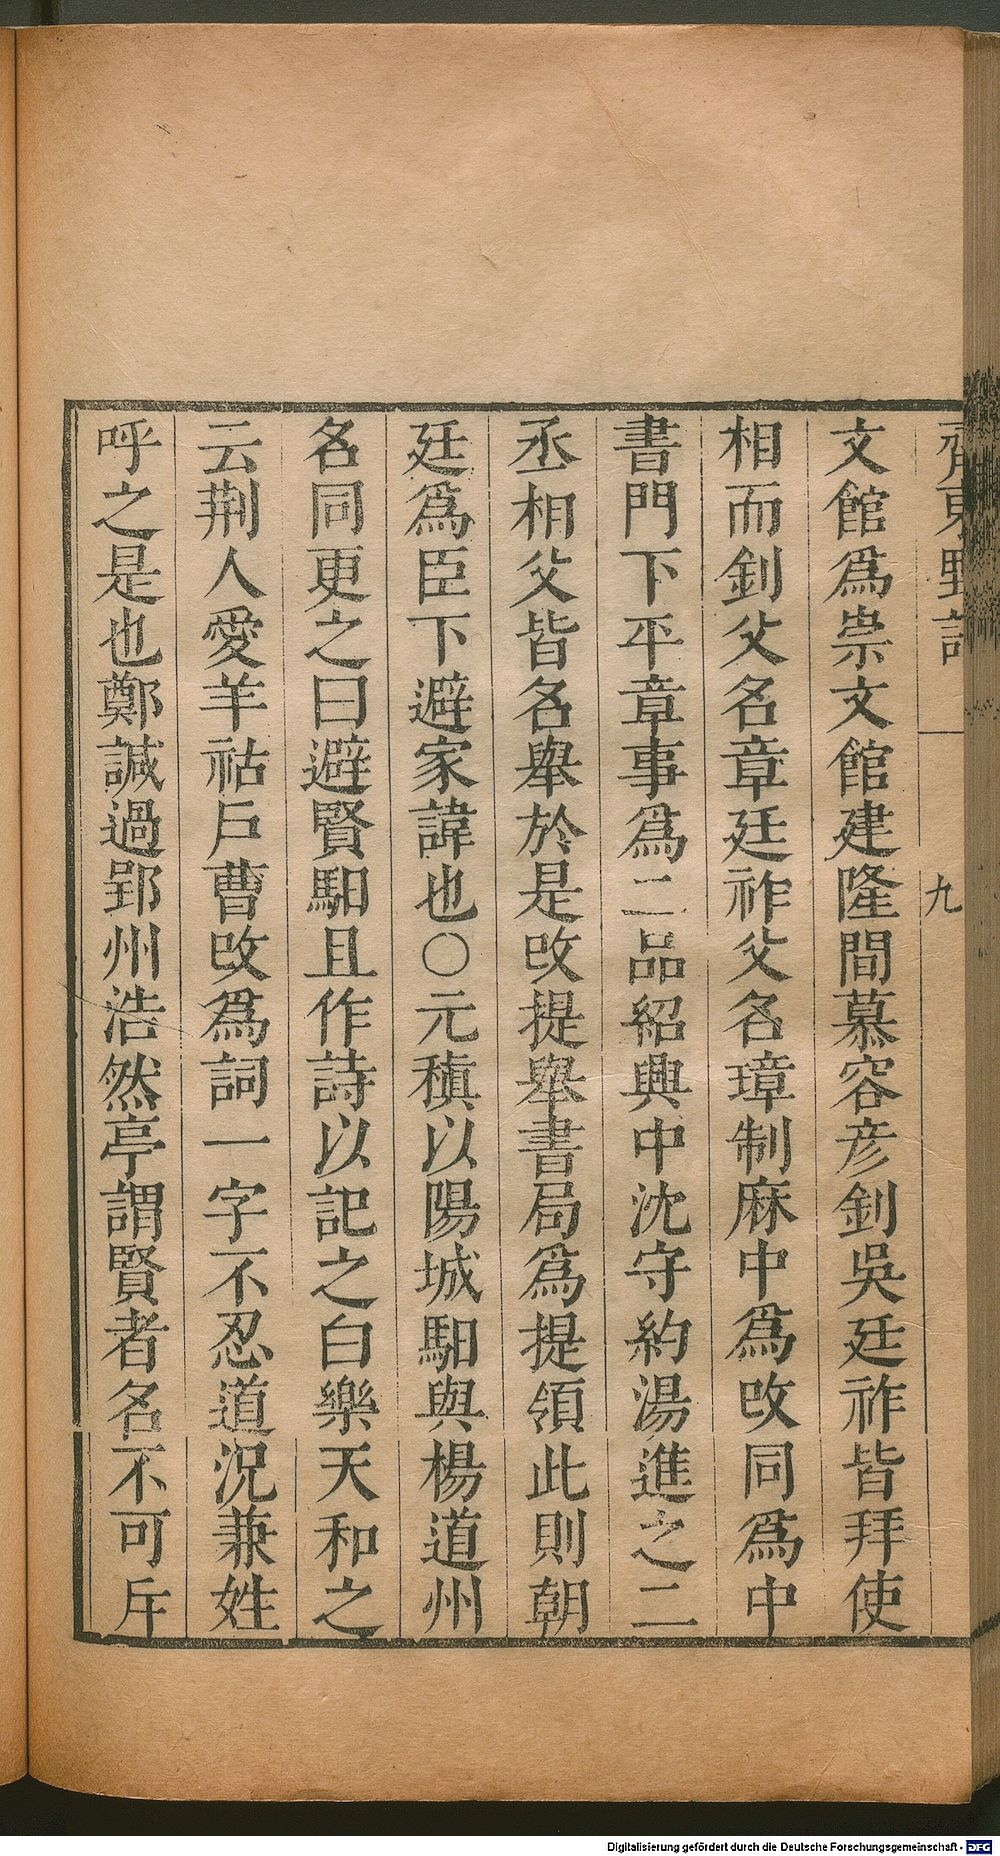 齊東野語
九
文館爲崇文館建隆間慕容彦釗吳廷祚皆拜使
相而釗父名章廷祚父名璋制麻中爲改同爲中
書門下平章事爲二品紹興中沈守約湯進之二
丞相父皆名舉於是改提舉書局爲提領此則朝
廷爲臣下避家諱也○元稹以陽城馹與楊道州
名同更之曰避賢馹且作詩以記之白樂天和之
云荆人愛羊祜戶曹改爲詞一字不忍道況兼姓
呼之是也鄭諴過郢州浩然亭謂賢者名不可斥
Digitalisierung gefördert durch die Deutsche Forschungsgemeinschaft - DFG